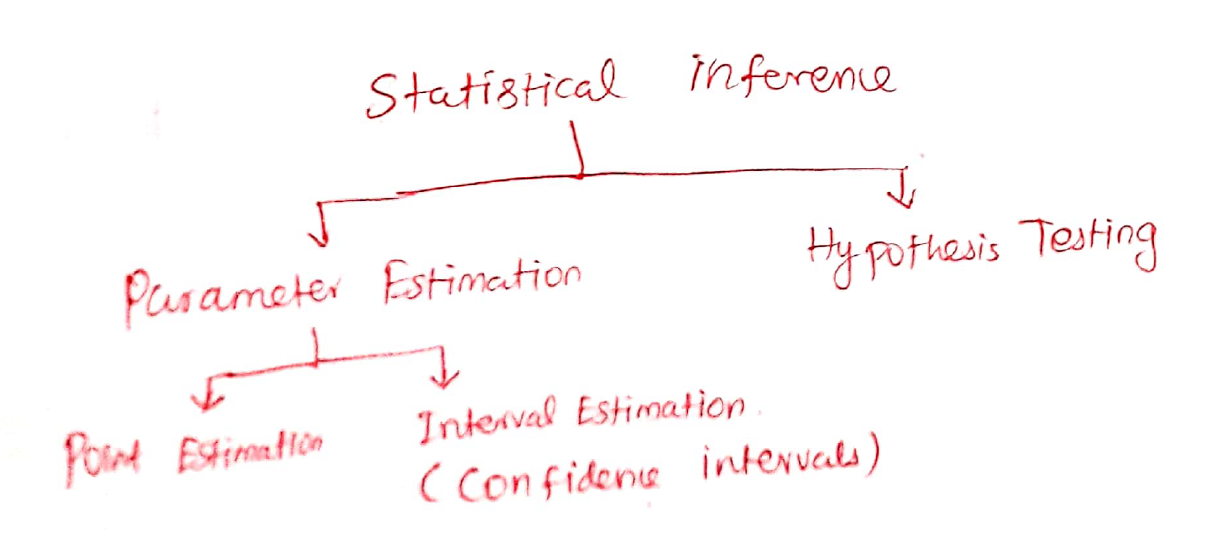 Statistical inference
Parameter Estimation
Hypothesis Testing
Point Estimation
Interval Estimation.
(Confidence intervals)